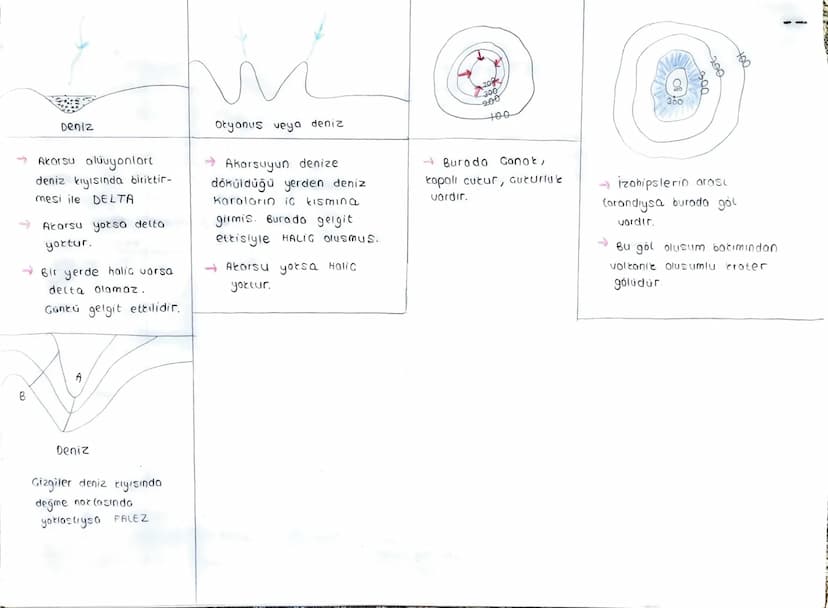 Deniz
→ Akarsu alüvyonları
deniz kıyısında biriktir-
mesi ile DELTA
→ Akarsu yoksa delta
yoktur.
→ Bir yerde haliç varsa
delta olamaz.
Çünkü gelgit etkilidir.
Okyanus veya deniz
→ Akarsuyun denize
döküldüğü yerden deniz
karaların iç kısmına
girmiş. Burada gelgit
etkisiyle HALİÇ oluşmuş.
→ Akarsu yoksa Haliç
yoktur.
200
300
200
100
→ Burada Çanak,
kapalı çukur, çukurluk
vardır.
100
200
300
200
→ İzohipslerin arası
tarandıysa burada göl
vardır.
→ Bu göl oluşum bakımından
volkanik oluşumlu krater
gölüdür
A
B
Deniz
Çizgiler deniz kıyısında
değme noktasında
yaklaştıysa FALEZ